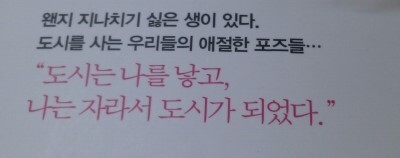 왠지 지나치기 싫은 생이 있다.
도시를 사는 우리들의 애절한 포즈들…
“도시는 나를 낳고,
나는 자라서 도시가 되었다.”